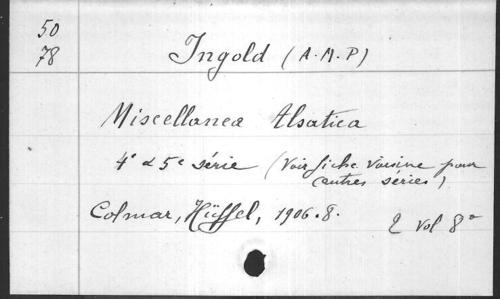 50
78
Ingold (A.M.P)
Miscellanea Alsatica
4e & 5e série (Voir fiche voisine pour
autres séries)
Colmar, Hüffel, 1906.8.
2 vol 8°